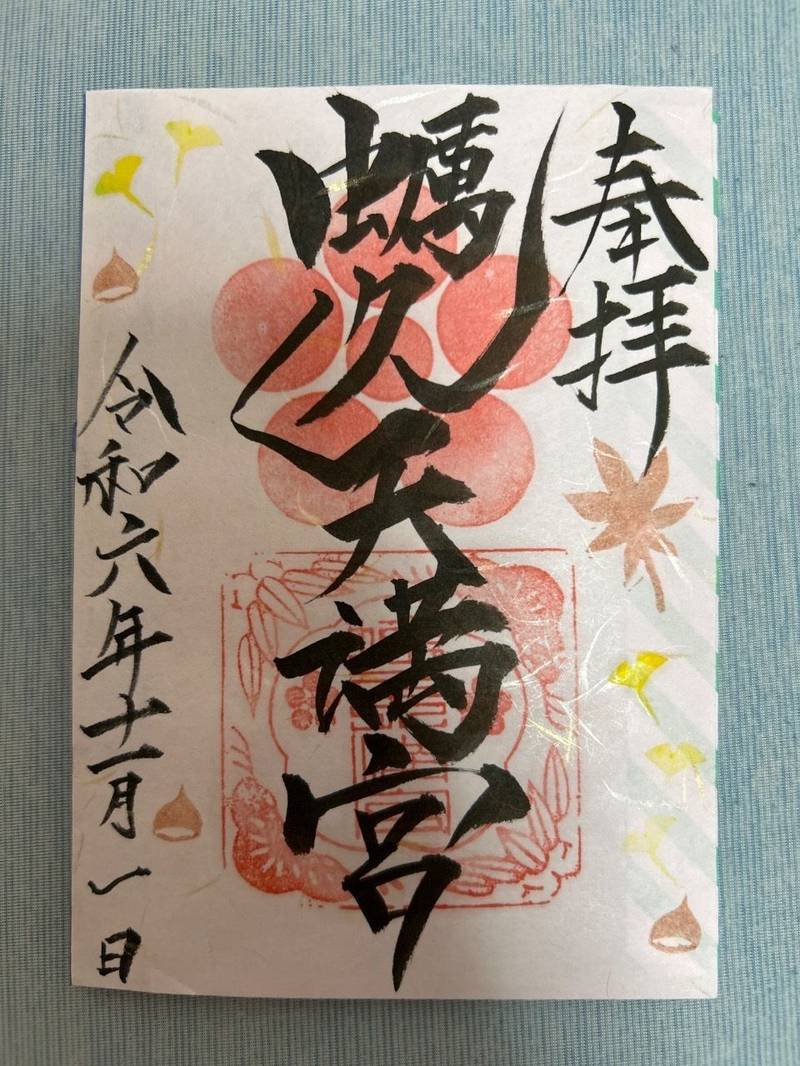 奉拝
蠣久天満宮
令和六年十一月一日